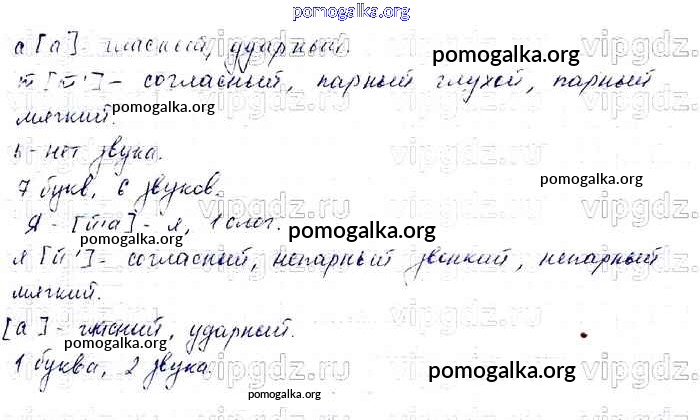 pomogalka.org
а [а] - гласный, ударный.
pomogalka.org
т [т'] - согласный, парный глухой, парный
pomogalka.org
мягкий.
ь - нет звука.
pomogalka.org
7 букв, 6 звуков.
Я - [й'а] - я, 1 слог.
pomogalka.org
pomogalka.org
я [й'] - согласный, непарный звонкий, непарный
мягкий.
[а] - гласный, ударный.
pomogalka.org
1 буква, 2 звука.
pomogalka.org
pomogalka.org
vipgdz.ru
vipgdz.ru
vipgdz.ru
vipgdz.ru